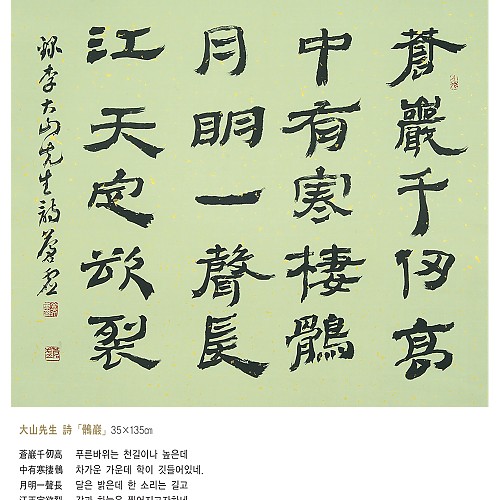 蒼巖千仞高
中有寒棲鶻
月明一聲長
江天定欲裂
錄李大山先生詩
大山先生 詩「鶻巖」 35×135㎝
蒼巖千仞高 푸른바위는 천길이나 높은데
中有寒棲鶻 차가운 가운데 학이 깃들어있네.
月明一聲長 달은 밝은데 한 소리는 길고